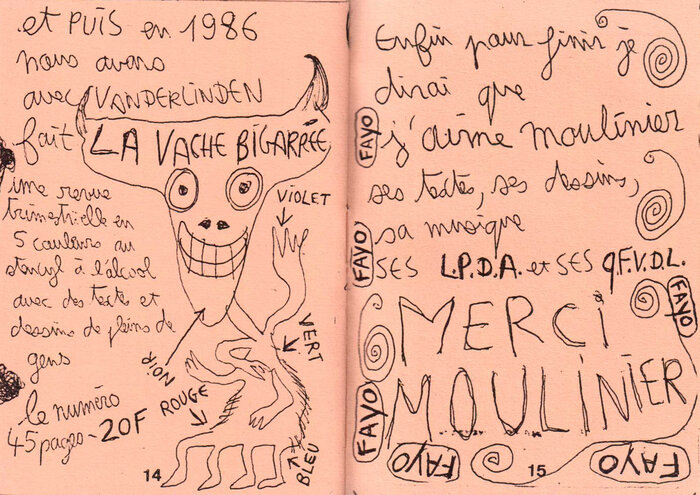 et PUIS en 1986
nous avons
avec VANDERLINDEN
fait LA VACHE BIGARRÉE
une revue
trimestrielle en
5 couleurs au
stencyl à l'alcool
avec des textes et
dessins de pleins de
gens
le numéro
45 pages - 20F
VIOLET
VERT
NOIR
ROUGE
BLEU
14
Enfin pour finir je
dirai que
j'aime moulinier
ses textes, ses dessins,
sa musique
SES L.P.D.A. et SES q.F.V.D.L.
MERCI
MOULINIER
FAYO
FAYO
FAYO
FAYO
FAYO
FAYO
15